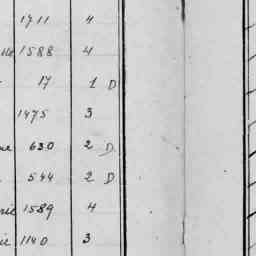 1711 4
1588 4
17 1 D
1475 3
630 2 D
544 2 D
1589 4
1140 3